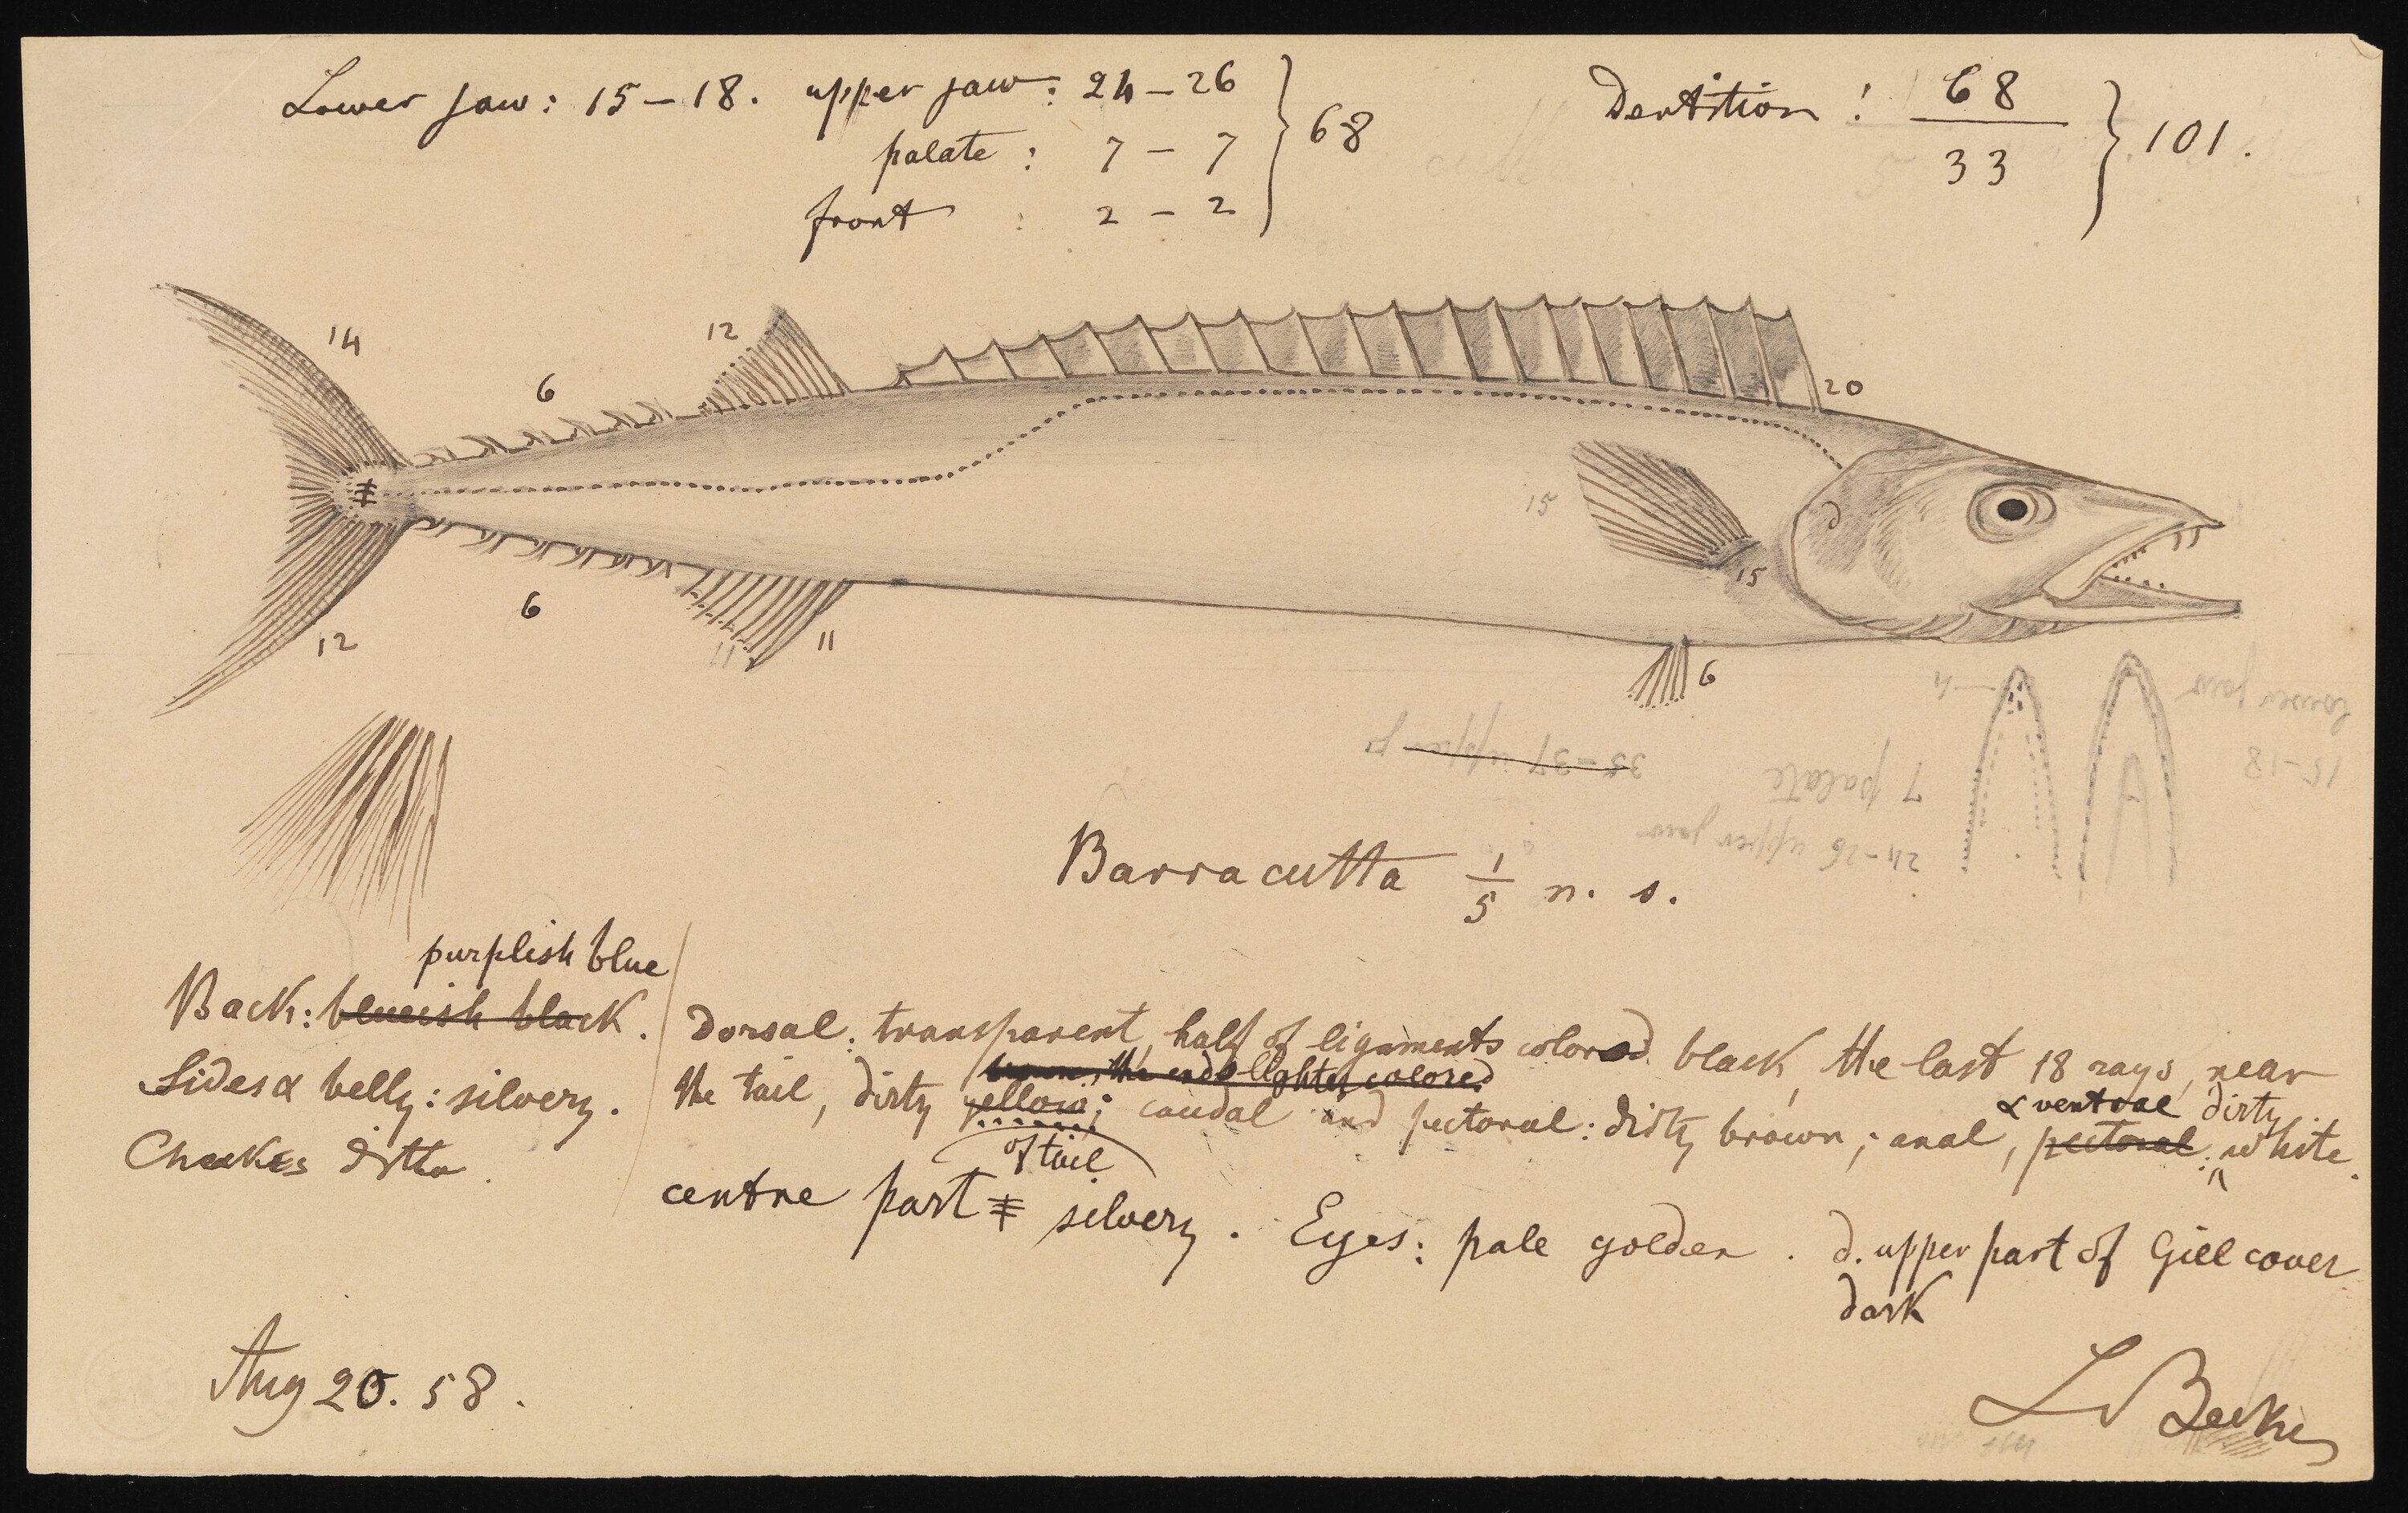 Lower jaw: 15 – 18. upper jaw: 24 – 26 } 68
palate : 7 – 7
front : 2 – 2
Dentition : 68 / 33 } 101.
14
6
12
20
15
15
6
12
11
11
6
4
lower jaw
15-18
35-37 upper j
7 palate
24-26 upper jaw
Barracutta 1/5 n. s.
purplish blue
Back: blueish black.
Sides & belly: silvery.
Cheekes ditto.
dorsal: transparent, half of ligaments colored black, the last 18 rays, near
brown, the ends lighter colored
the tail, dirty yellow; caudal and pectoral: dirty brown; anal, pectoral: white.
& ventral dirty
of tail
centre part silvery. Eyes: pale golden. d. upper part of Gill cover
dark
Aug 20. 58.
L Becker